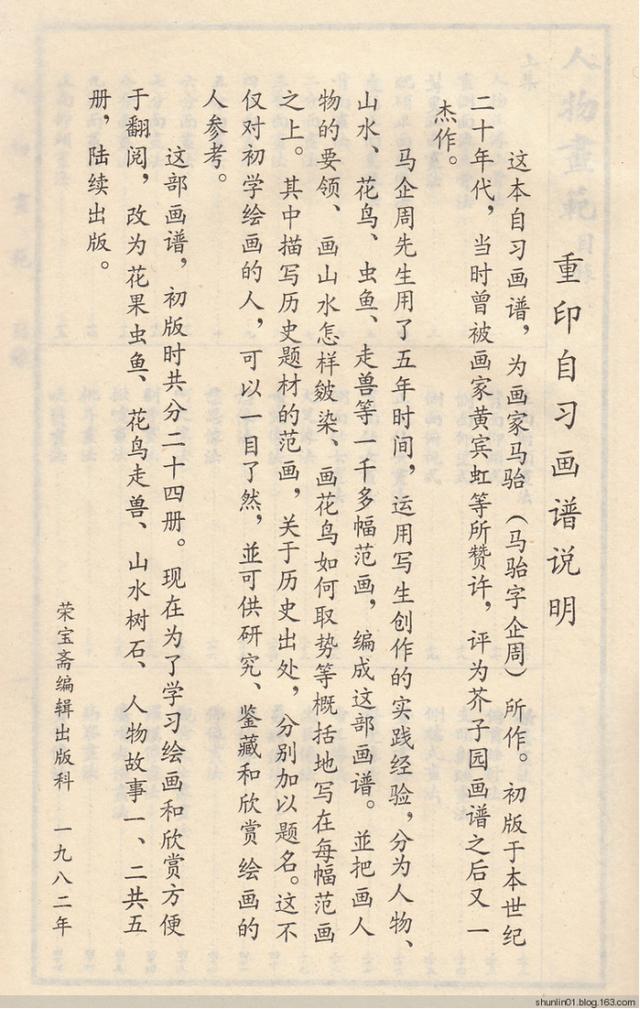 重印自习画谱说明
这本自习画谱，为画家马骀（马骀字企周）所作。初版于本世纪
二十年代，当时曾被画家黄宾虹等所赞许，评为芥子园画谱之后又一
杰作。
马企周先生用了五年时间，运用写生创作的实践经验，分为人物、
山水、花鸟、虫鱼、走兽等一千多幅范画，编成这部画谱。並把画人
物的要领、画山水怎样皴染、画花鸟如何取势等概括地写在每幅范画
之上。其中描写历史题材的范画，关于历史出处，分别加以题名。这不
仅对初学绘画的人，可以一目了然，並可供研究、鉴藏和欣赏绘画的
人参考。
这部画谱，初版时共分二十四册。现在为了学习绘画和欣赏方便
于翻阅，改为花果虫鱼、花鸟走兽、山水树石、人物故事一、二共五
册，陆续出版。
荣宝斋编辑出版科 一九八二年
shunlin01.blog.163.com